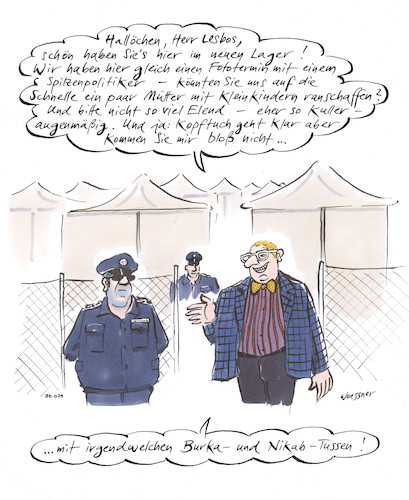 Hallöchen, Herr Lesbos,
schön haben Sie's hier im neuen Lager!
Wir haben hier gleich einen Fototermin mit einem
Spitzenpolitiker – könnten Sie uns auf die
Schnelle ein paar Mütter mit Kleinkindern ranschaffen?
Und bitte nicht so viel Elend – eher so Kuller-
augenmäßig. Und ja: Kopftuch geht klar aber
kommen Sie mir bloß nicht...
Woessner
...mit irgendwelchen Burka- und Nikab-Tussen!